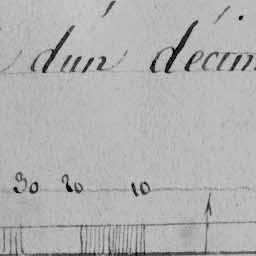 d'un décim
30 20 10